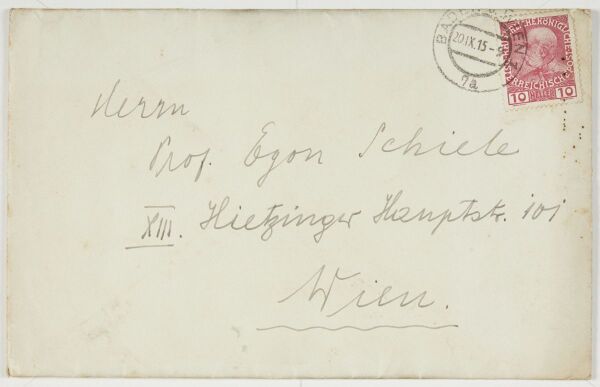 BADEN b. WIEN
20 IX. 15
7a
10 HELLER 10
Herrn
Prof. Egon Schiele
XIII. Hietzinger Hauptstr. 101
Wien.